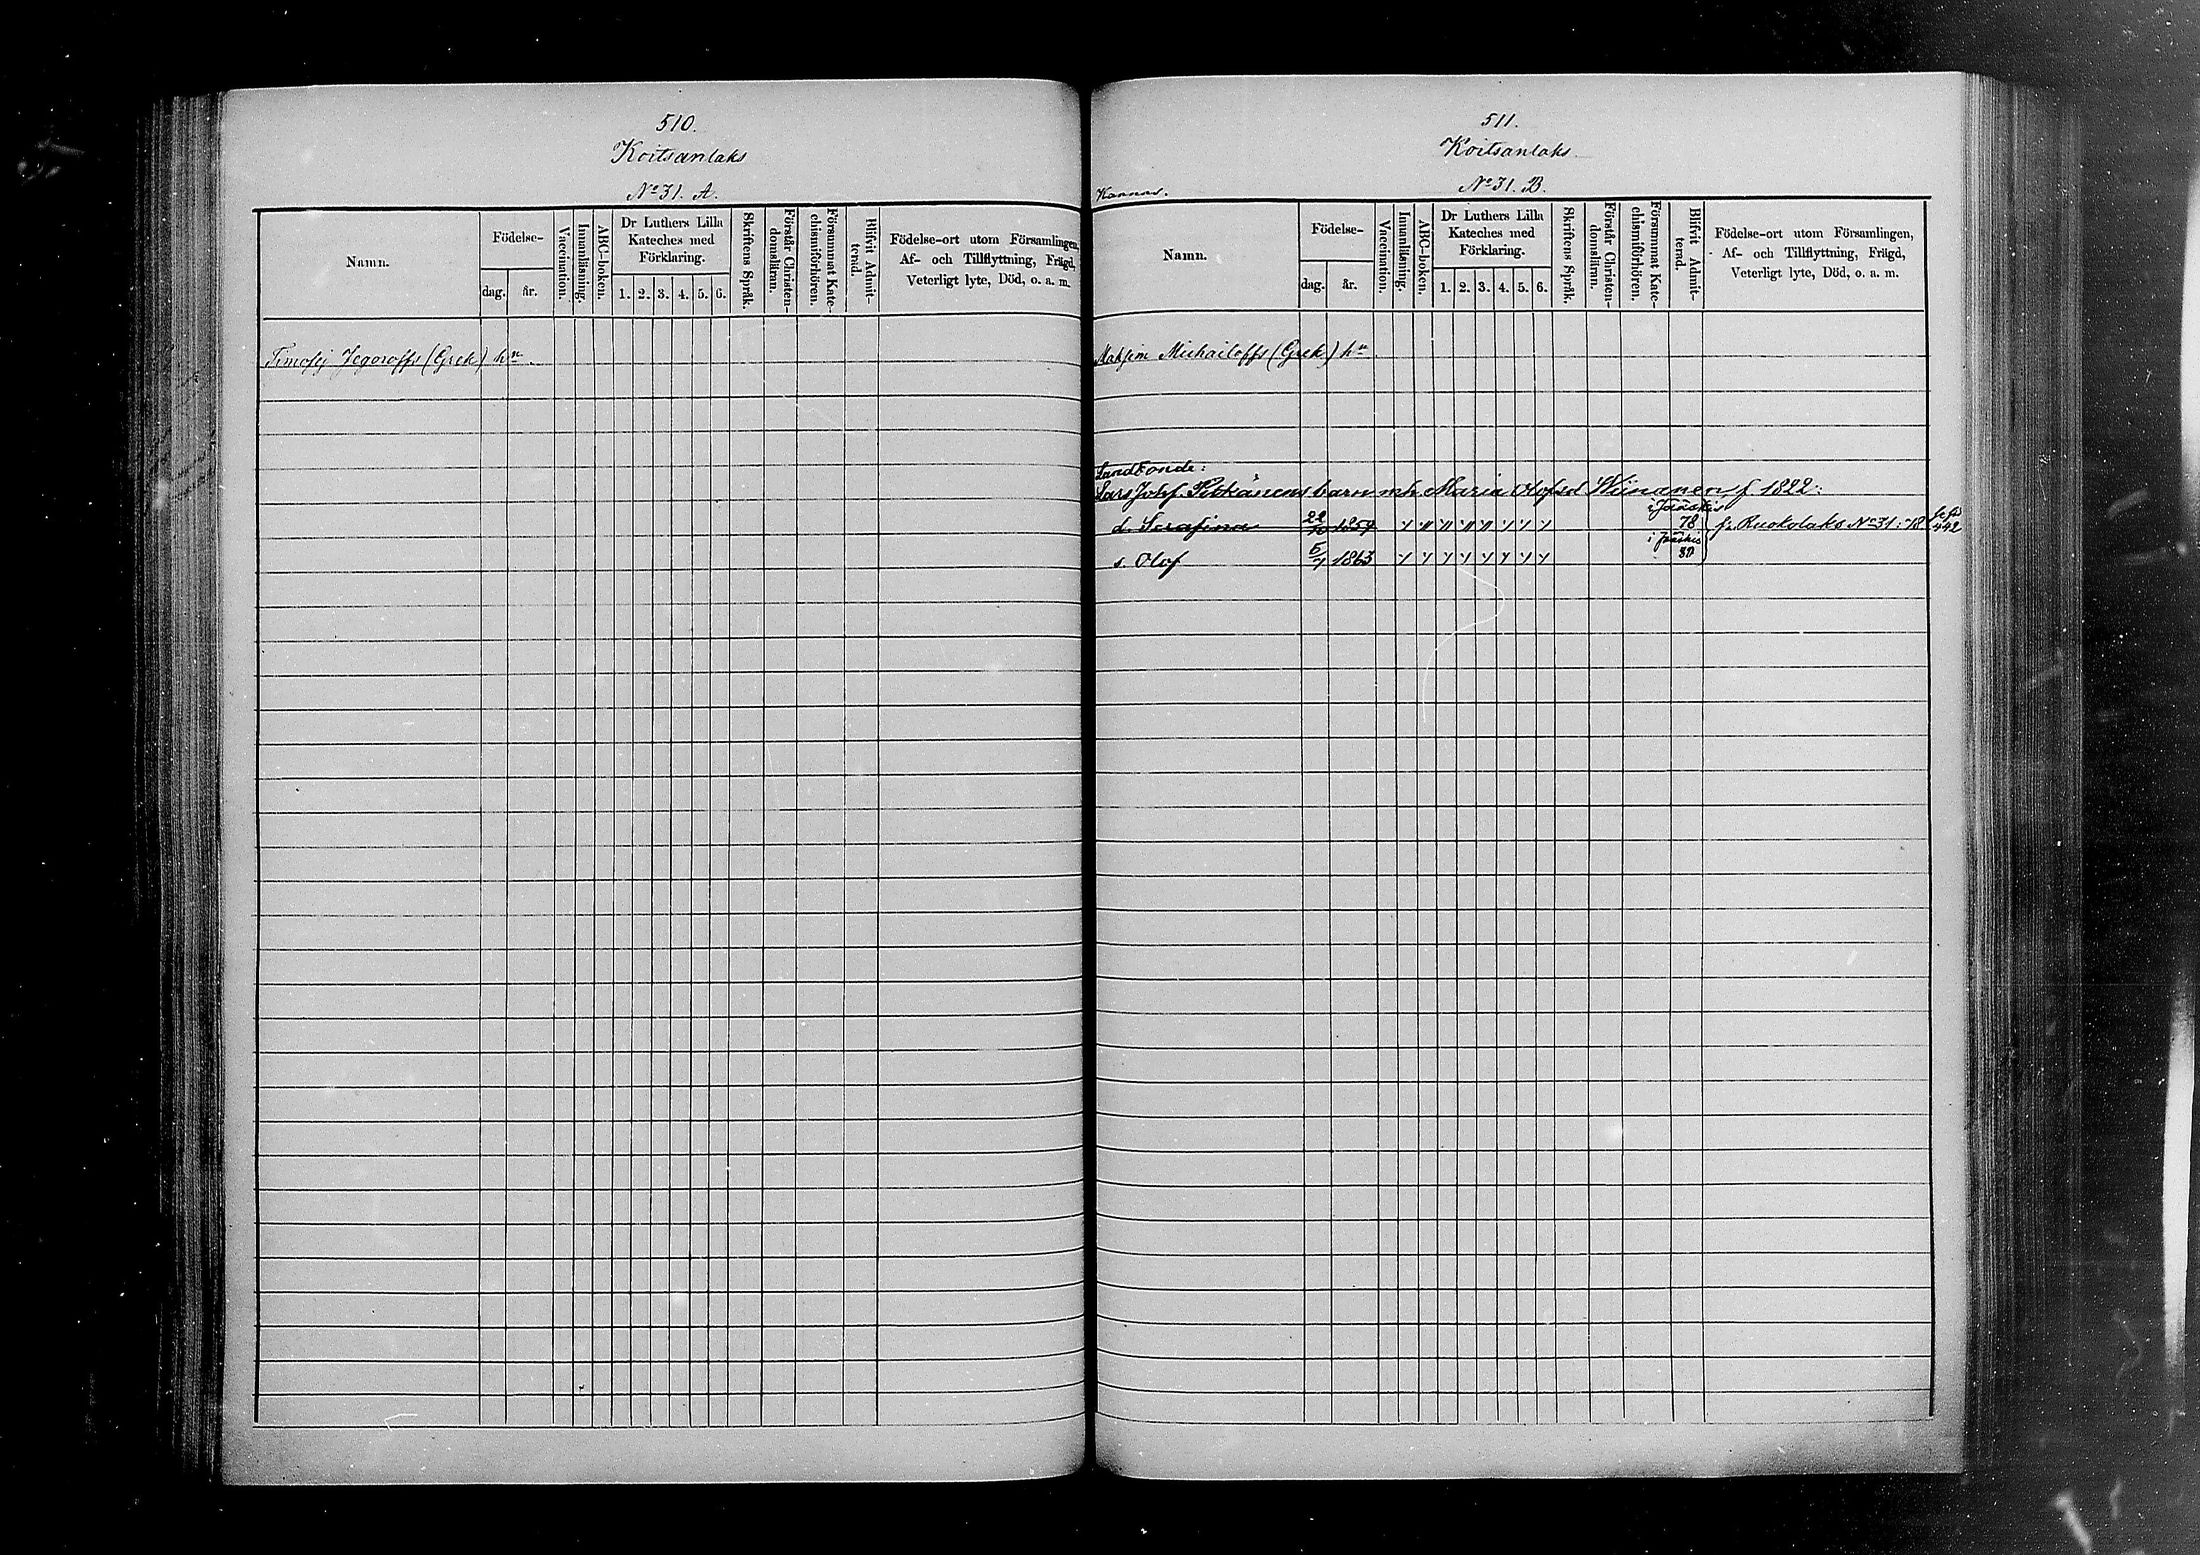 510.
Koitsanlaks
No 31. A.
Namn.
Födelse-
dag.
år.
Vaccination.
Innanläsning.
ABC-boken.
Dr Luthers Lilla
Kateches med
Förklaring.
1. 2. 3. 4. 5. 6.
Skriftens Språk.
Förstår Christen-
domsläran.
Försummat Kate-
chismiförhören.
Blifvit Admit-
terad.
Födelse-ort utom Församlingen,
Af- och Tillflyttning, Frägd,
Veterligt lyte, Död, o. a. m.
Timofej Jegoroffs (Grek) hn.
511.
Koitsanlaks.
No 31. B.
Kannas.
Namn.
Födelse-
dag.
år.
Vaccination.
Innanläsning.
ABC-boken.
Dr Luthers Lilla
Kateches med
Förklaring.
1. 2. 3. 4. 5. 6.
Skriftens Språk.
Förstår Christen-
domsläran.
Försummat Kate-
chismiförhören.
Blifvit Admit-
terad.
Födelse-ort utom Församlingen,
Af- och Tillflyttning, Frägd,
Veterligt lyte, Död, o. a. m.
Maksim Michailoffs (Grek) hn
Landbonde:
Lars Johsf. Pitkänens barn mh Maria Olofsd Wiinanen f. 1822:
d. Serafina 22/10 1859 i Jääskis 78 fr. Ruokolaks No 31: 78 442
s. Olof 5/7 1863 i Jääskis 80